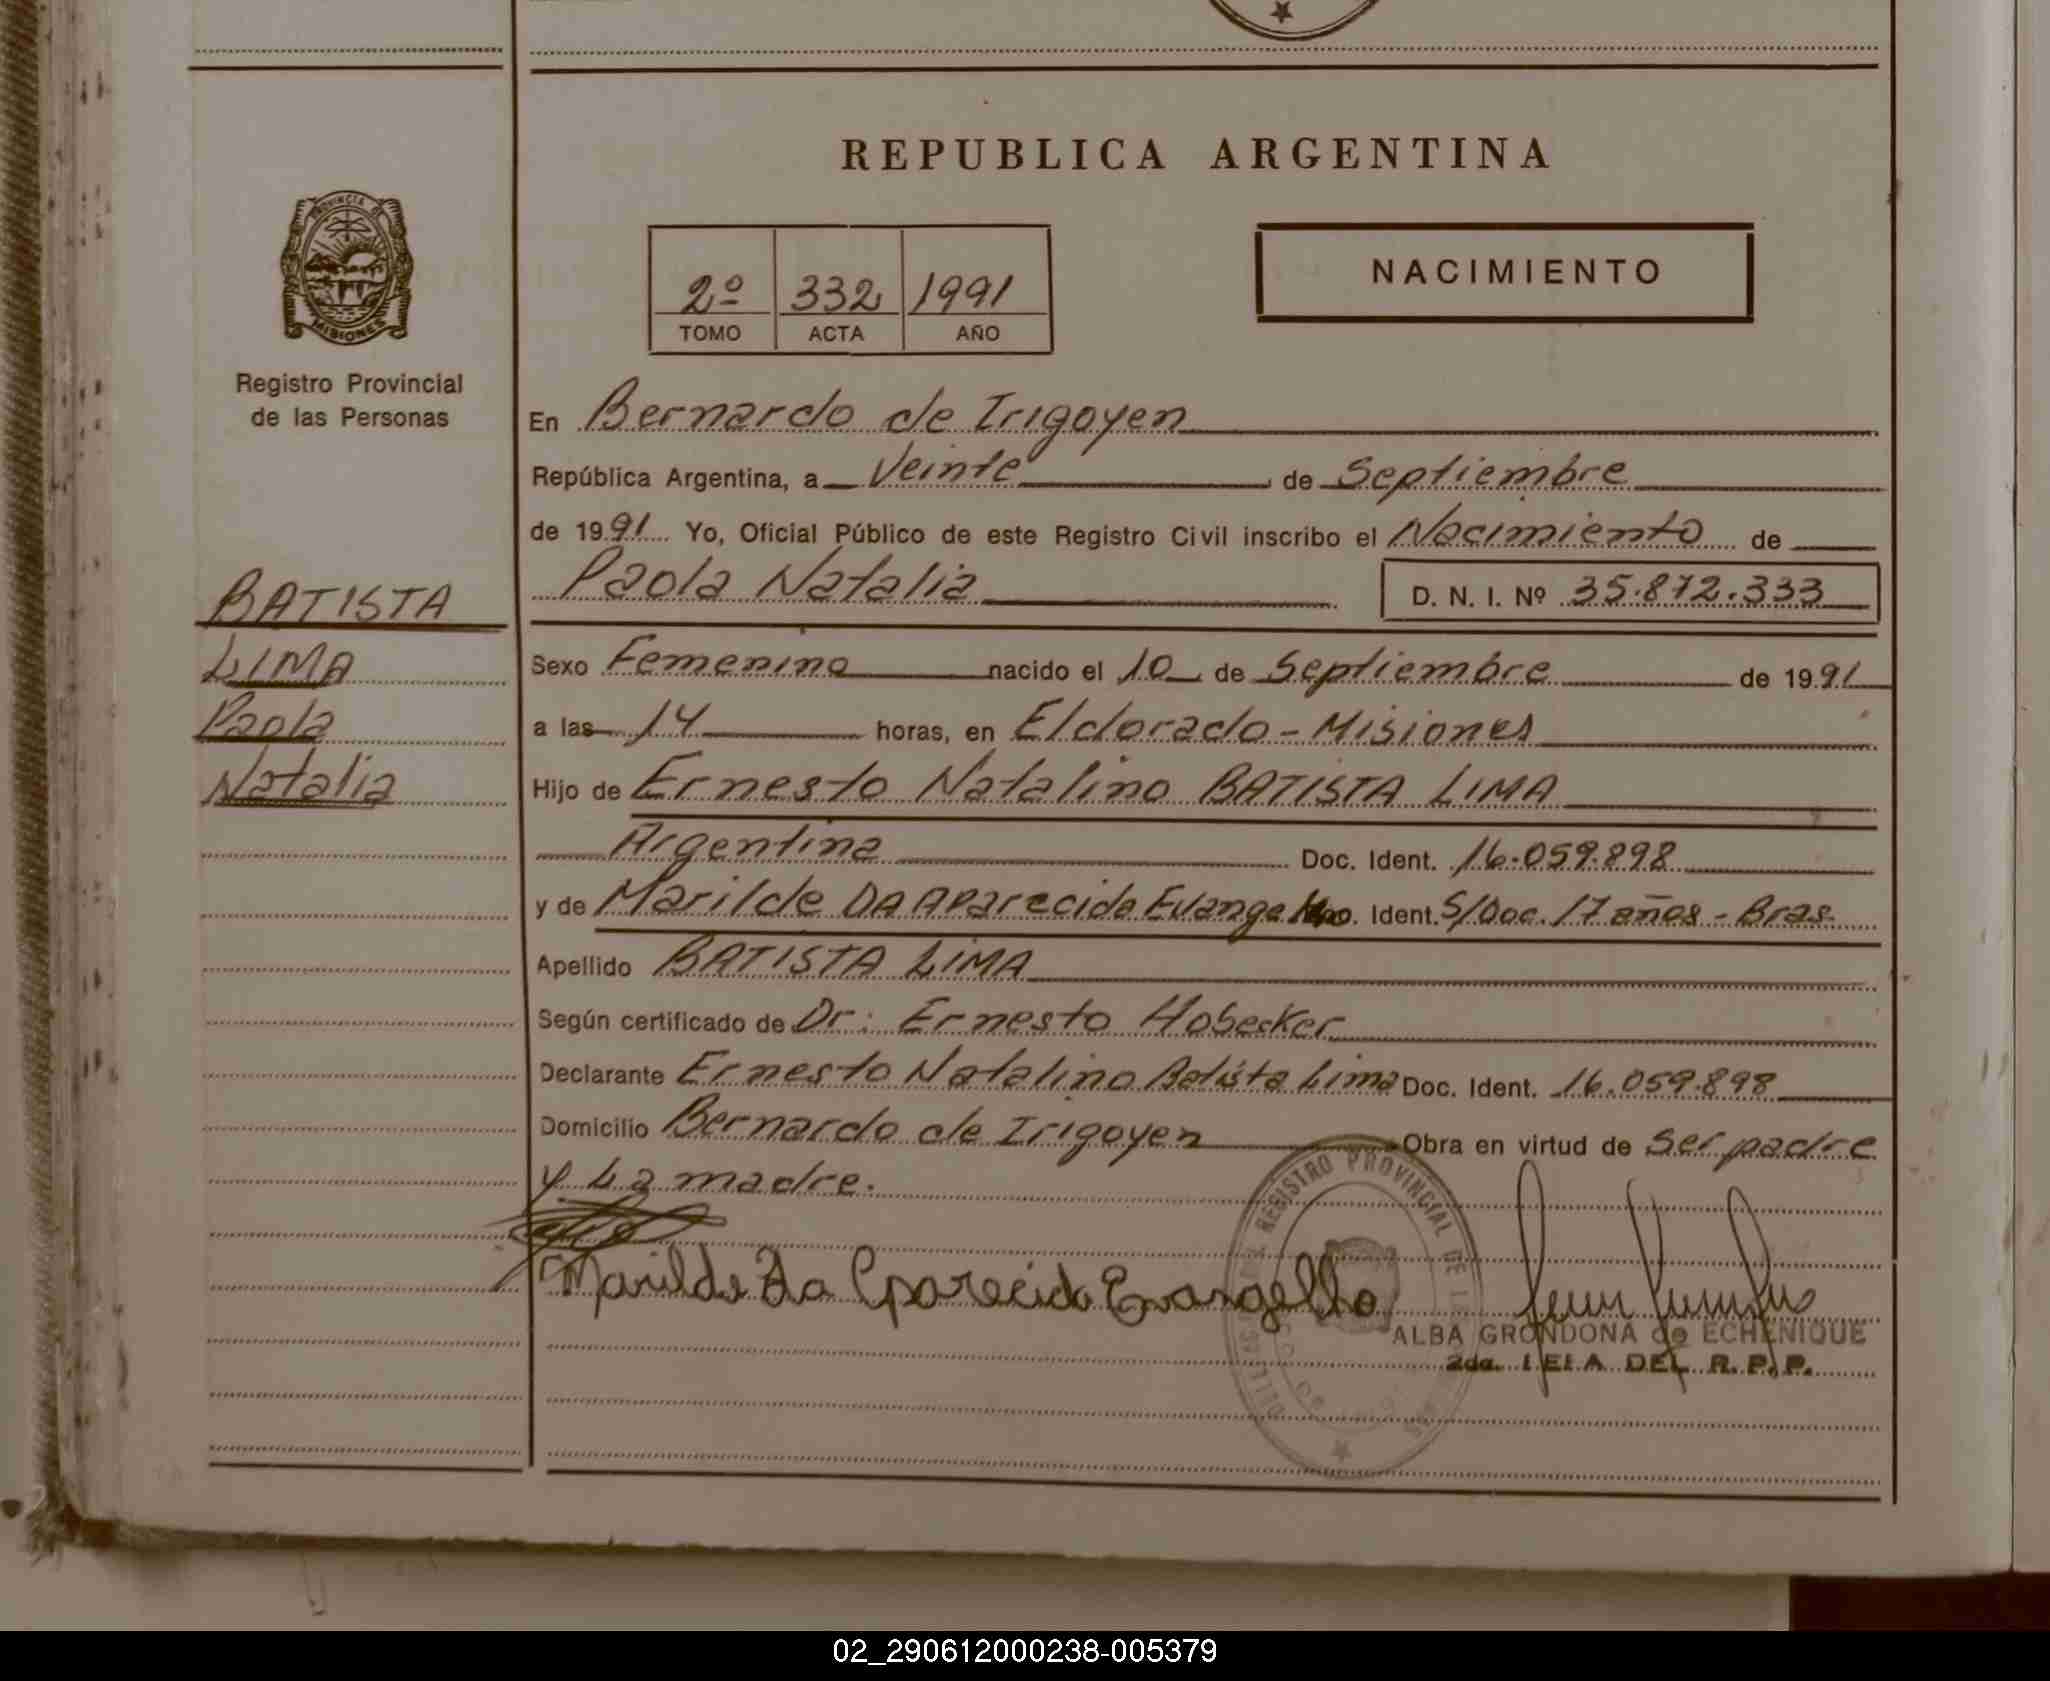 REPUBLICA ARGENTINA
PROVINCIA DE
MISIONES
Registro Provincial
de las Personas
2º 332 1991
TOMO ACTA AÑO
NACIMIENTO
En Bernardo de Irigoyen
República Argentina, a Veinte de Septiembre
de 1991 Yo, Oficial Público de este Registro Civil inscribo el Nacimiento de
Paola Natalia D. N. I. Nº 35.872.333
BATISTA
LIMA
Paola
Natalia
Sexo Femenino nacido el 10 de Septiembre de 1991
a las 14 horas, en Eldorado - Misiones
Hijo de Ernesto Natalino BATISTA LIMA
Argentina Doc. Ident. 16.059.898
y de Marilde DA Aparecida Ident. S/Doc. 17 años - Bras.
Apellido BATISTA LIMA
Según certificado de Dr: Ernesto Hobecker
Declarante Ernesto Natalino Batista Lima Doc. Ident. 16.059.898
Domicilio Bernardo de Irigoyen Obra en virtud de Ser padre
y La madre.
REGISTRO PROVINCIAL DE
Marilde Da Aparecida Evangelho
ALBA GRONDONA de ECHENIQUE
2da. DEL R.P.P.
02_290612000238-005379